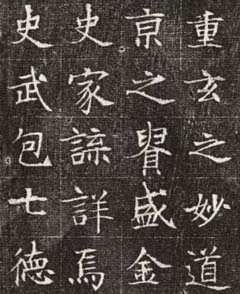 重玄之妙道
亰之譽盛金
史家諜詳焉
史武包七德